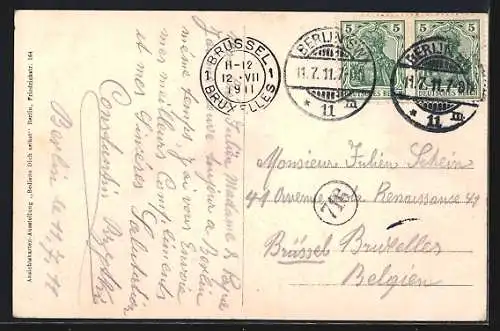 Ansichtskarten-Ausstellung „Bediene Dich selbst“ Berlin, Friedrichstr. 164
Berlin le 11/7 11
Julien Madame &
toujours a Berlin
même temps, j'ai vous Envoie
mes meilleurs Compliments
et mes Sincères Salutations
Constantin
BRÜSSEL
11-12
12 VII
1911
BRUXELLES
BERLIN
11.7.11.7-8N
* 11 m
BERLIN
11.7.11.7-8N
* 11 m
5 5
DEUTSCHES REICH
5 5
DEUTSCHES REICH
Monsieur Julien Schein
41 Avenue de la Renaissance 41
716
Brüssel Bruxelles
Belgien